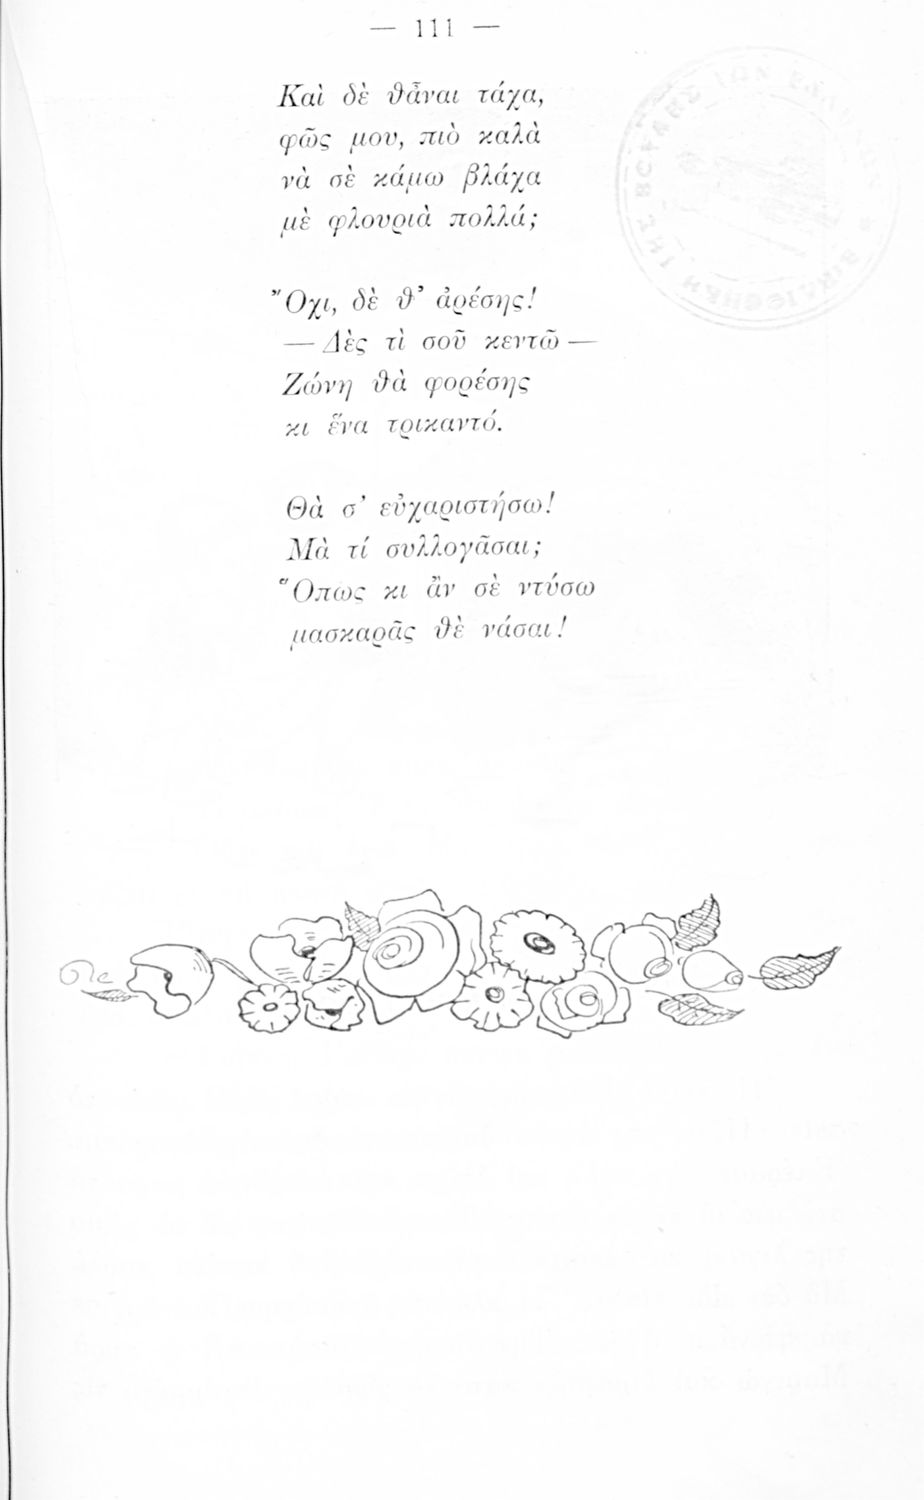 — 111 —
Καὶ δὲ θἆναι τάχα,
φῶς μου, πιὸ καλὰ
νὰ σὲ κάμω βλάχα
μὲ φλουριὰ πολλά;
Ὄχι, δὲ θ’ ἀρέσης!
— Δὲς τὶ σοῦ κεντῶ —
Ζώνη θὰ φορέσης
κι ἕνα τρικαντό.
Θὰ σ’ εὐχαριστήσω!
Μὰ τί συλλογᾶσαι;
Ὅπως κι ἂν σὲ ντύσω
μασκαρᾶς θὲ νάσαι!